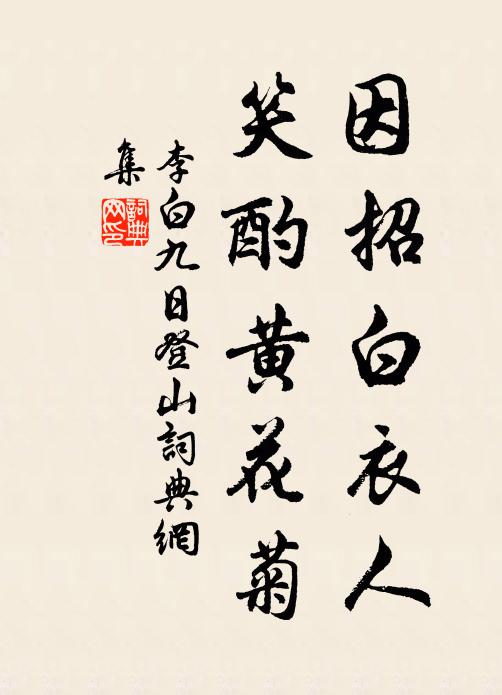 因招白衣人
笑酌黄花菊
李白九日登山詞典網
集
詞典
网印